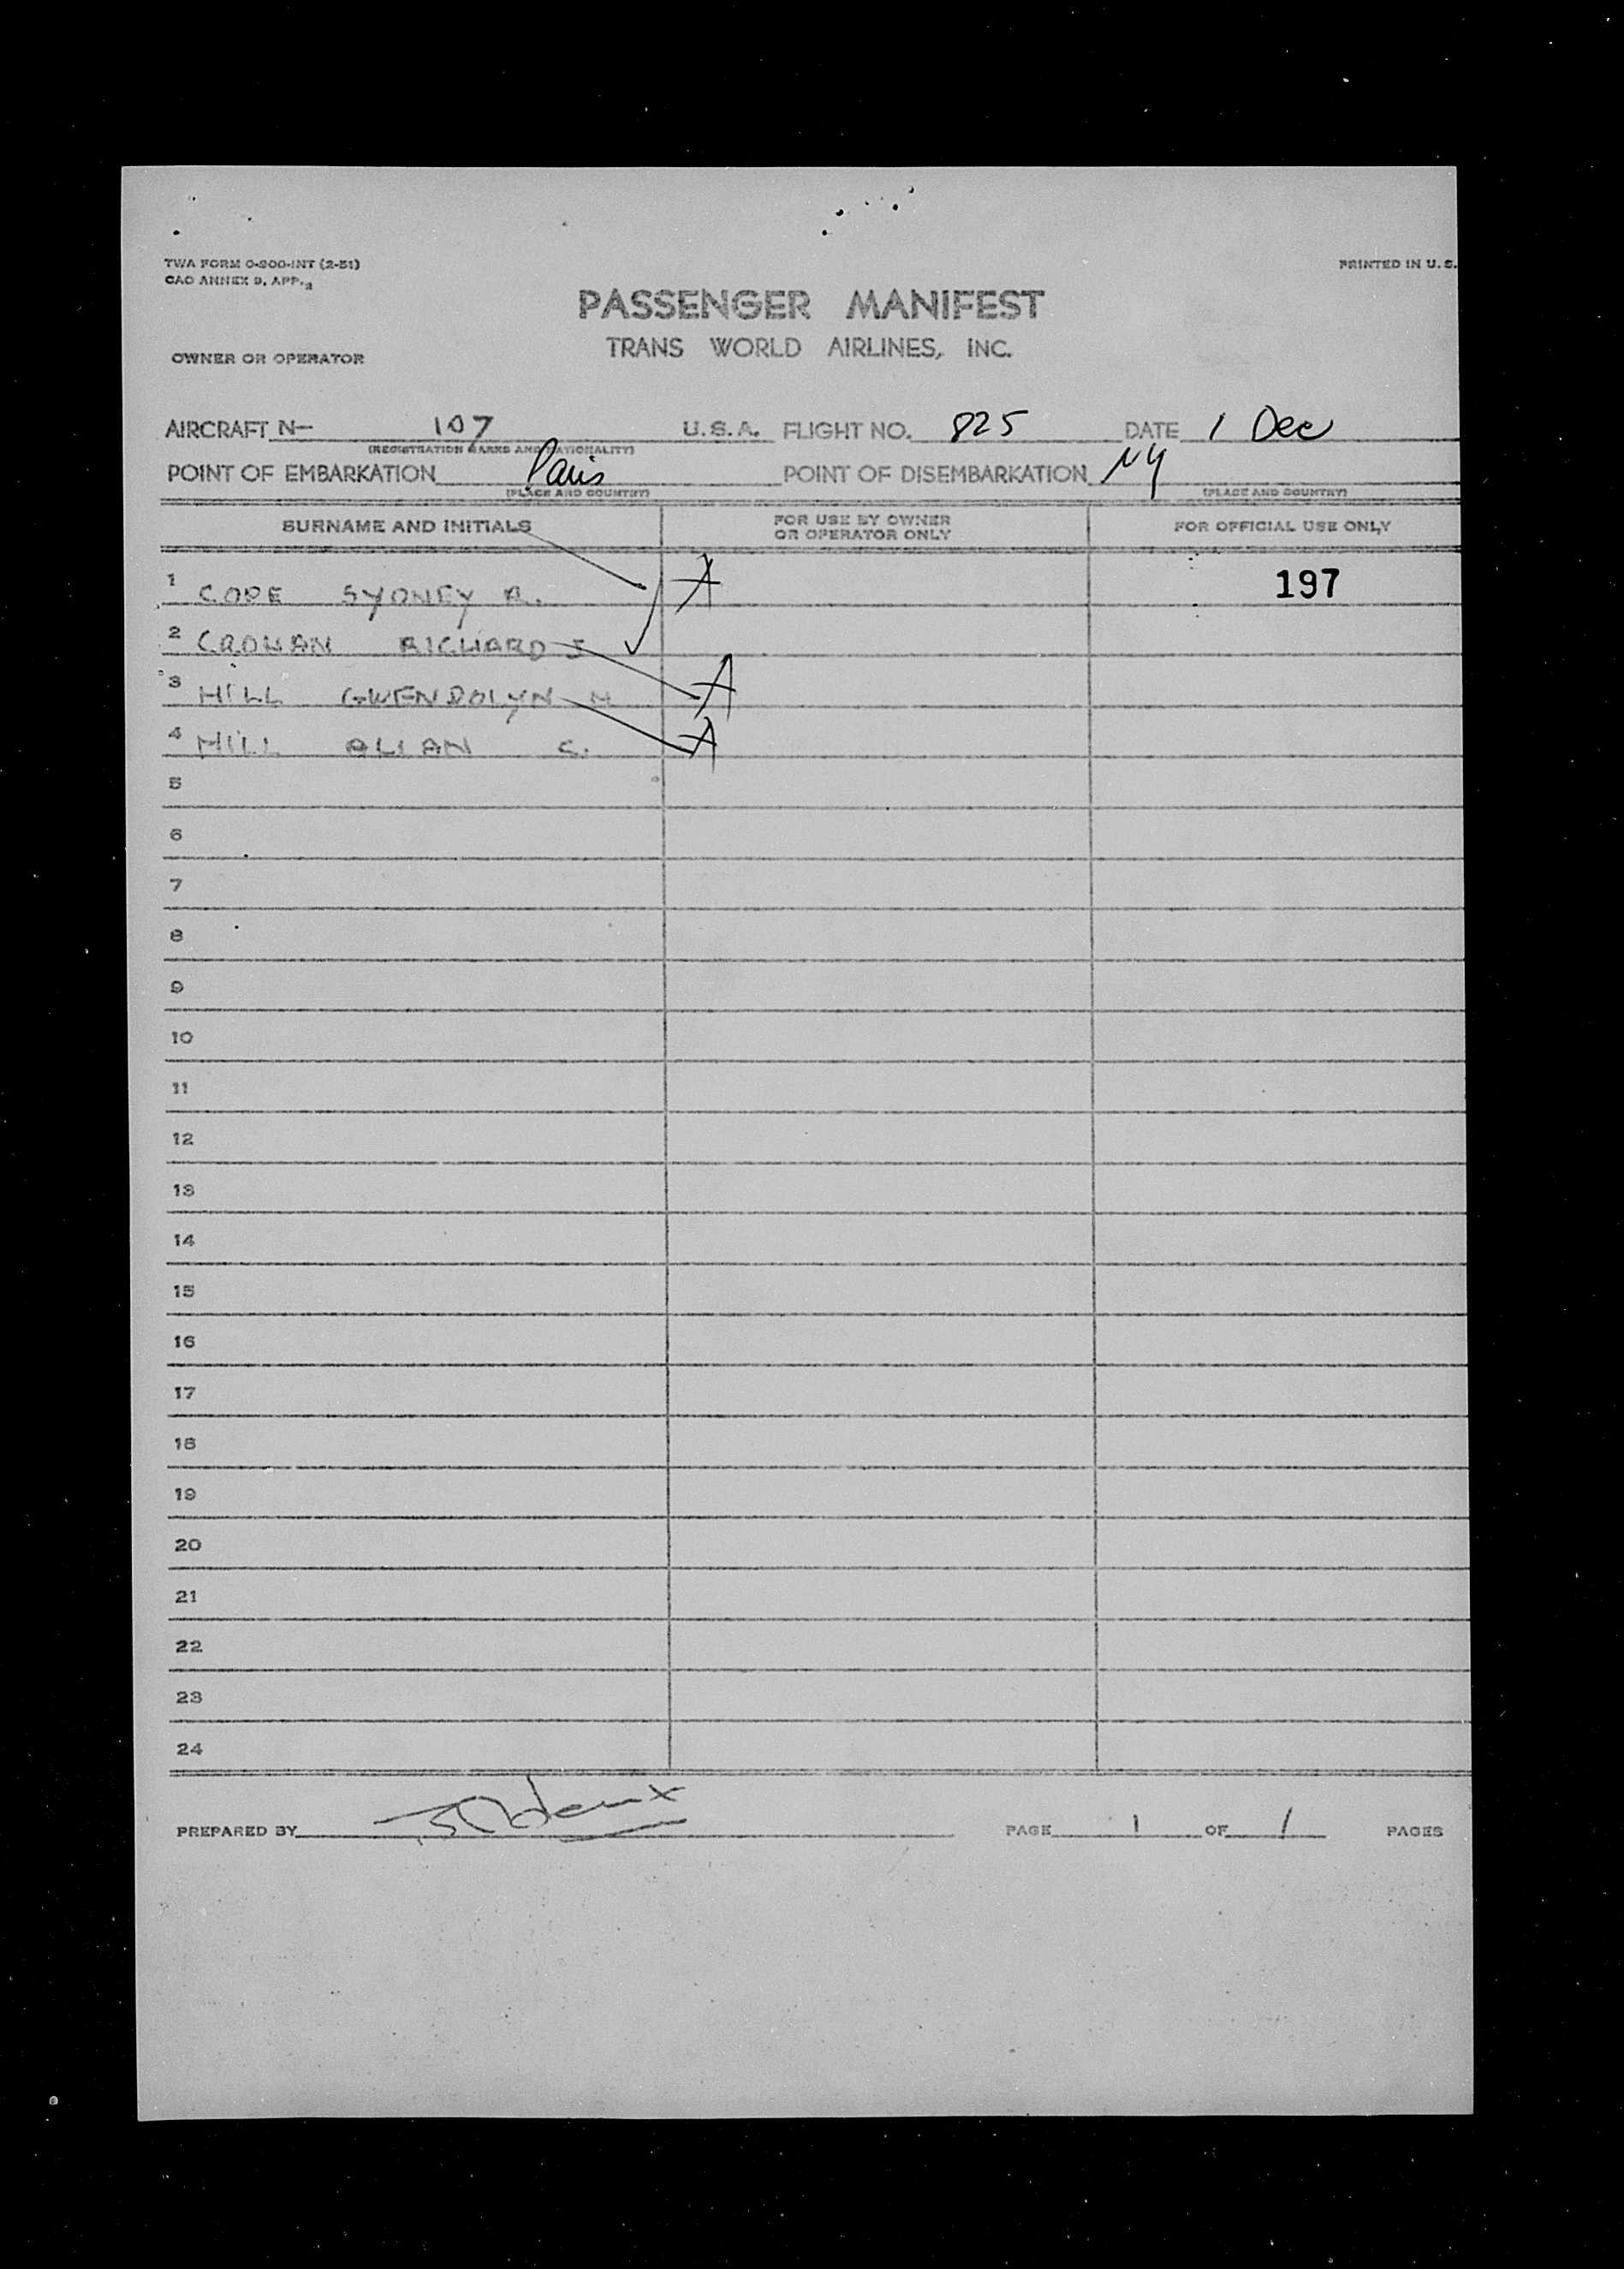 TWA FORM O-200-INT (2-51)
CAO ANNEX 9, APP. 3
PRINTED IN U. S.
PASSENGER MANIFEST
TRANS WORLD AIRLINES, INC.
OWNER OR OPERATOR
AIRCRAFT N- 107 U.S.A. FLIGHT NO. 825 DATE 1 Dec
(REGISTRATION MARKS AND NATIONALITY)
POINT OF EMBARKATION Paris POINT OF DISEMBARKATION NY
(PLACE AND COUNTRY) (PLACE AND COUNTRY)
SURNAME AND INITIALS FOR USE BY OWNER OR OPERATOR ONLY FOR OFFICIAL USE ONLY
1 COPE SYDNEY R. A 197
2 CRONAN RICHARD J
3 HILL GWENDOLYN M A
4 HILL ALLAN C. A
5
6
7
8
9
10
11
12
13
14
15
16
17
18
19
20
21
22
23
24
PREPARED BY PAGE 1 OF 1 PAGES